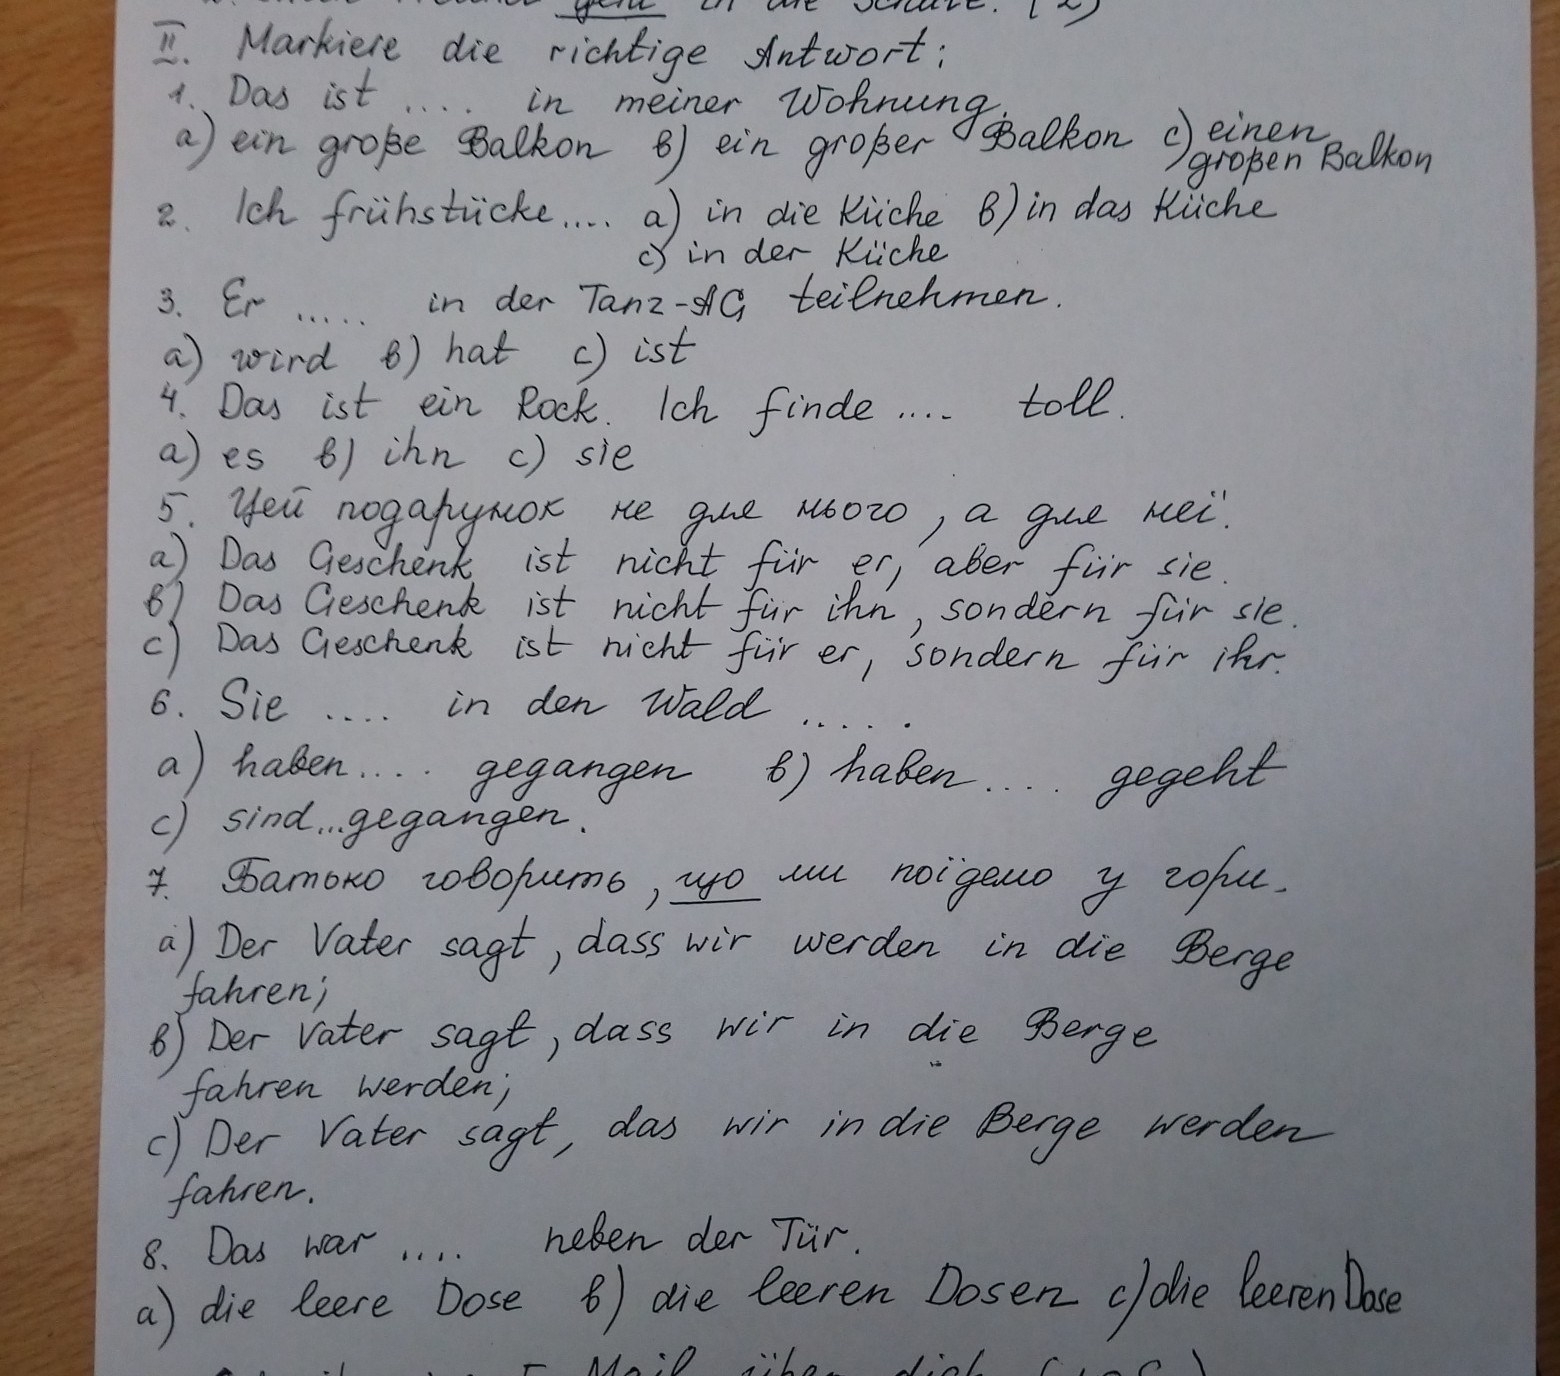 geht in die Schule. (2)
II. Markiere die richtige Antwort:
1. Das ist .... in meiner Wohnung.
a) ein große Balkon в) ein großer Balkon c) einen
großen Balkon
2. Ich frühstücke.... a) in die Küche в) in das Küche
c) in der Küche
3. Er ..... in der Tanz-AG teilnehmen.
a) wird в) hat c) ist
4. Das ist ein Rock. Ich finde .... toll.
a) es в) ihn c) sie
5. Цей подарунок не для нього, а для неї.
a) Das Geschenk ist nicht für er, aber für sie.
в) Das Geschenk ist nicht für ihn, sondern für sie.
c) Das Geschenk ist nicht für er, sondern für ihr.
6. Sie .... in den Wald .....
a) haben.... gegangen в) haben.... gegeht
c) sind...gegangen.
7. Батько говорить, що ми поїдемо у гори.
a) Der Vater sagt, dass wir werden in die Berge
fahren;
в) Der Vater sagt, dass wir in die Berge
fahren werden;
c) Der Vater sagt, das wir in die Berge werden
fahren.
8. Das war .... neben der Tür.
a) die leere Dose в) die leeren Dosen c) die leeren Dose
Mail über dich